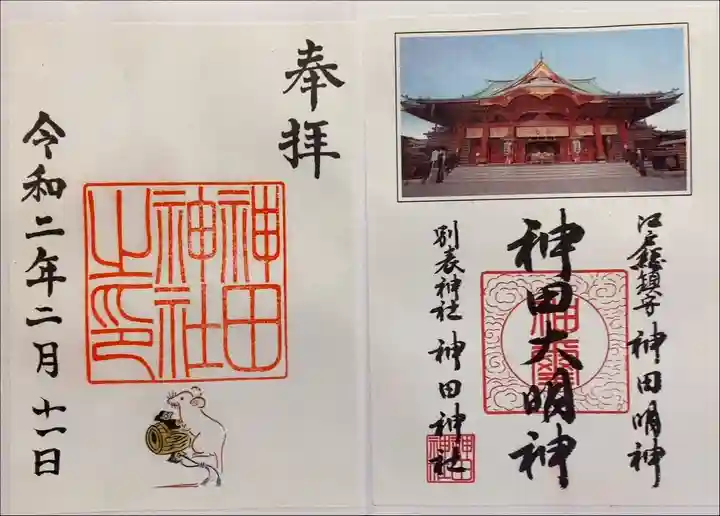 奉拝
神田
神社
之印
令和二年二月十一日
江戸総鎮守 神田明神
神田大明神
別表神社 神田神社
神田
神社